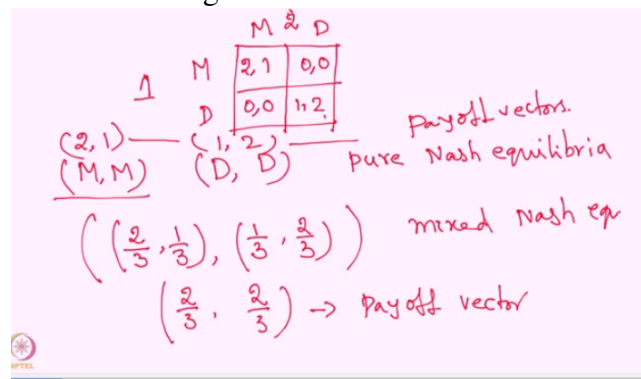 M 2 D
1 M 2,1 0,0
D 0,0 1,2
(2,1) — (1,2) — Payoff vectors.
(M,M) (D,D) pure Nash equilibria
((2/3, 1/3), (1/3, 2/3)) mixed Nash eqn
(2/3, 2/3) → Payoff vector
NPTEL